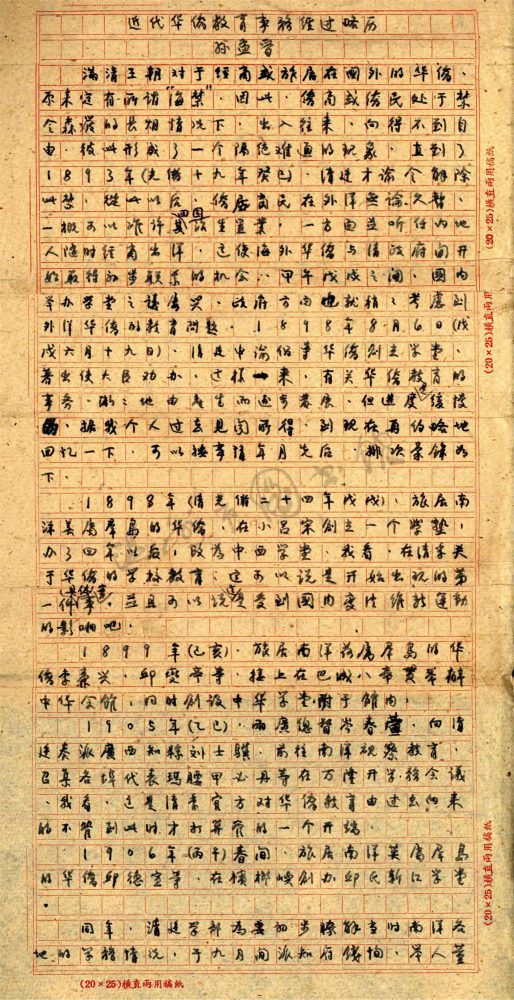 近代华侨教育事务经过略历
孙孟晋
满清王朝对于经商或旅居在国外的华侨,
原来定有所谓“海禁”。因此,侨商或侨民处于禁
令森严的长期情况下,出入往来,向得不到自
由,彼此形成了一个隔绝难通的现象。直到了
1893年(光绪十九年癸巳),清廷才谕令解除
此禁。从此以后,侨居商民在外洋无论久暂,
一概可以准许其回国谋生置业,一方面并听任内地
人随时经商出洋。这使海外华侨与清政府间开
始取得初步联系的机会。甲午戊戌之间,国内
举办学堂之议屡兴。政府方面也就稍之考虑到
外洋华侨的教育问题。1898年8月6日(戊
戌六月十九日),清廷申谕侨寓华侨创立学堂,
著出使大臣劝办。这样一来,有关华侨教育的
事务,渐之地由产生而逐步发展,但进度还缓慢
。据我个人过去见闻所得,到现在再约略地
回忆一下,可以按事情年月先后,排次条录如
下。
1898年(清光绪二十四年戊戌),旅居南
洋美属群岛的华侨,在小吕宋创立一个学塾,
办了四年以后,改为中西学堂。我看,在清季关
于华侨的学校教育,这可以说是开始出现的第
一件事,并且可以说是受到国内变法维新运动
的影响吧。
1899年(己亥),旅居南洋荷属群岛的华
侨李兴,邱燮亭等,接上在巴城八帝贯举办
中华会馆,同时创设中华学堂附于馆内。
1905年(乙巳),两广总督岑春萱,向清
廷奏派广西知县刘士骥,前往南洋视察教育,
召集各埠代表玛腰甲必丹等在万隆开学务会议
。我看,这是清季官方对华侨教育由过去向来
的不管到此时才打算管的一个开端。
1906年(丙午)春间,旅居南洋英属群岛
的华侨邱德宣等,在槟榔屿创办邱氏新江学堂
。
同年,清廷学部为要初步了解当时南洋各
地的学务情况,于九月间派知府钱恂,举人董
(20×25)横直两用稿纸
(20×25)横直两用
(20×25)横直两用稿纸
(20×25)横直两用稿纸